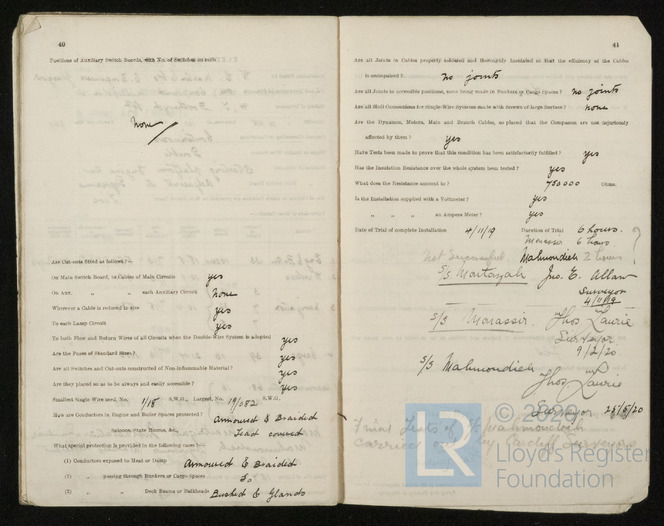 40
Positions of Auxiliary Switch Boards, with No. of Switches on each
none
Are Cut-outs fitted as follows?—
On Main Switch Board, to Cables of Main Circuits yes
On Aux. " " each Auxiliary Circuit none
Wherever a Cable is reduced in size yes
To each Lamp Circuit yes
To both Flow and Return Wires of all Circuits when the Double-Wire System is adopted yes
Are the Fuses of Standard Sizes? yes
Are all Switches and Cut-outs constructed of Non-Inflammable Material? yes
Are they placed so as to be always and easily accessible? yes
Smallest Single Wire used, No. 1/18 S.W.G., Largest, No. 19/082 S.W.G.
How are Conductors in Engine and Boiler Spaces protected? Armoured & Braided
Saloons, State Rooms, &c., Lead covered
What special protection is provided in the following cases:—
(1) Conductors exposed to Heat or Damp Armoured & Braided
(2) " passing through Bunkers or Cargo Spaces Do
(3) " " Deck Beams or Bulkheads Bushed & Glands
41
Are all Joints in Cables properly soldered and thoroughly insulated so that the efficiency of the Cables
is unimpaired? no joints
Are all Joints in accessible positions, none being made in Bunkers or Cargo Spaces? no joints
Are all Hull Connections for Single-Wire Systems made with Screws of large Surface? none
Are the Dynamos, Motors, Main and Branch Cables, so placed that the Compasses are not injuriously
affected by them? yes
Have Tests been made to prove that this condition has been satisfactorily fulfilled? yes
Has the Insulation Resistance over the whole system been tested? yes
What does the Resistance amount to? 750000 Ohms.
Is the Installation supplied with a Voltmeter? yes
" " " an Ampere Meter? yes
Date of Trial of complete Installation 4/11/19 Duration of Trial 6 hours.
6 hours
not Successful Mahmoudieh 2 hours ?
S/S Jno. E. Allan
Surveyor
4/11/19
S/S Marassir. Thos Laurie
Surveyor
9/2/20
S/S Mahmoudieh
Thos Laurie
Surveyor 25/5/20
Trial Tests of Mahmoudieh
carried by Cardiff Surveyors
© 2020
LR
Lloyd's Register
Foundation